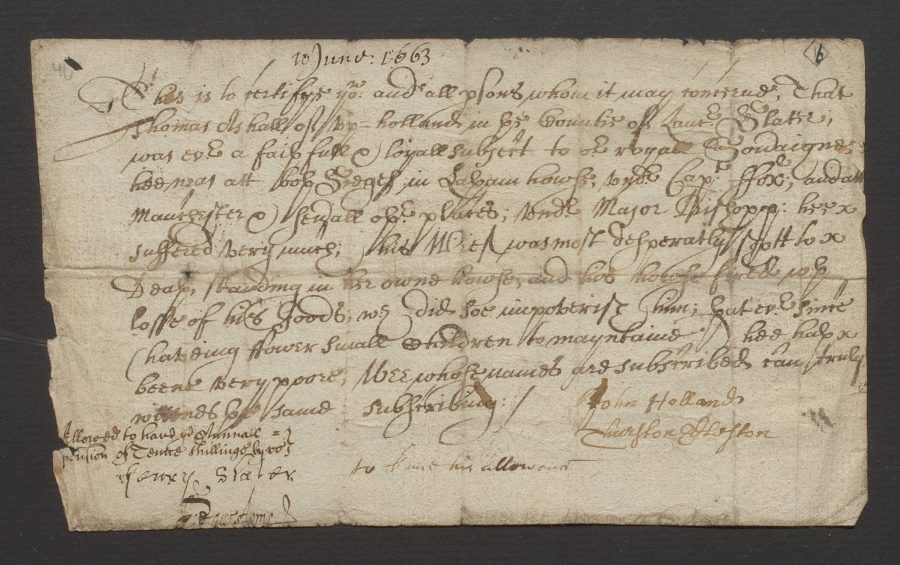 10 June: 1663
This is to certifye yow and all psons whom it may concerne, That
Thomas Ashall of Vp=holland in the Countie of Lancr Slater,
was ever a faithfull & loyall subject to or royall Soveraigne
hee was att both Sieges in Latham howse, vnder Capt ffox, and att
Manchester & severall other places, vnder Major Bishopp: hee
suffered very much, his Wief was most desperatly shott to
Death, standing in her owne howse, and his howse fired wth
losse of his goods, wch did soe impoverish him; that ever since
(haveing ffower small Children to mayntaine) hee hath
beene very poore, Wee whose names are subscribed can truly
witnes the same subscribing:/
John Holland
Thurston
Allowed to have ye Annuall
pension of Tenne shillings by vs
Henry Slater
to have his allowance